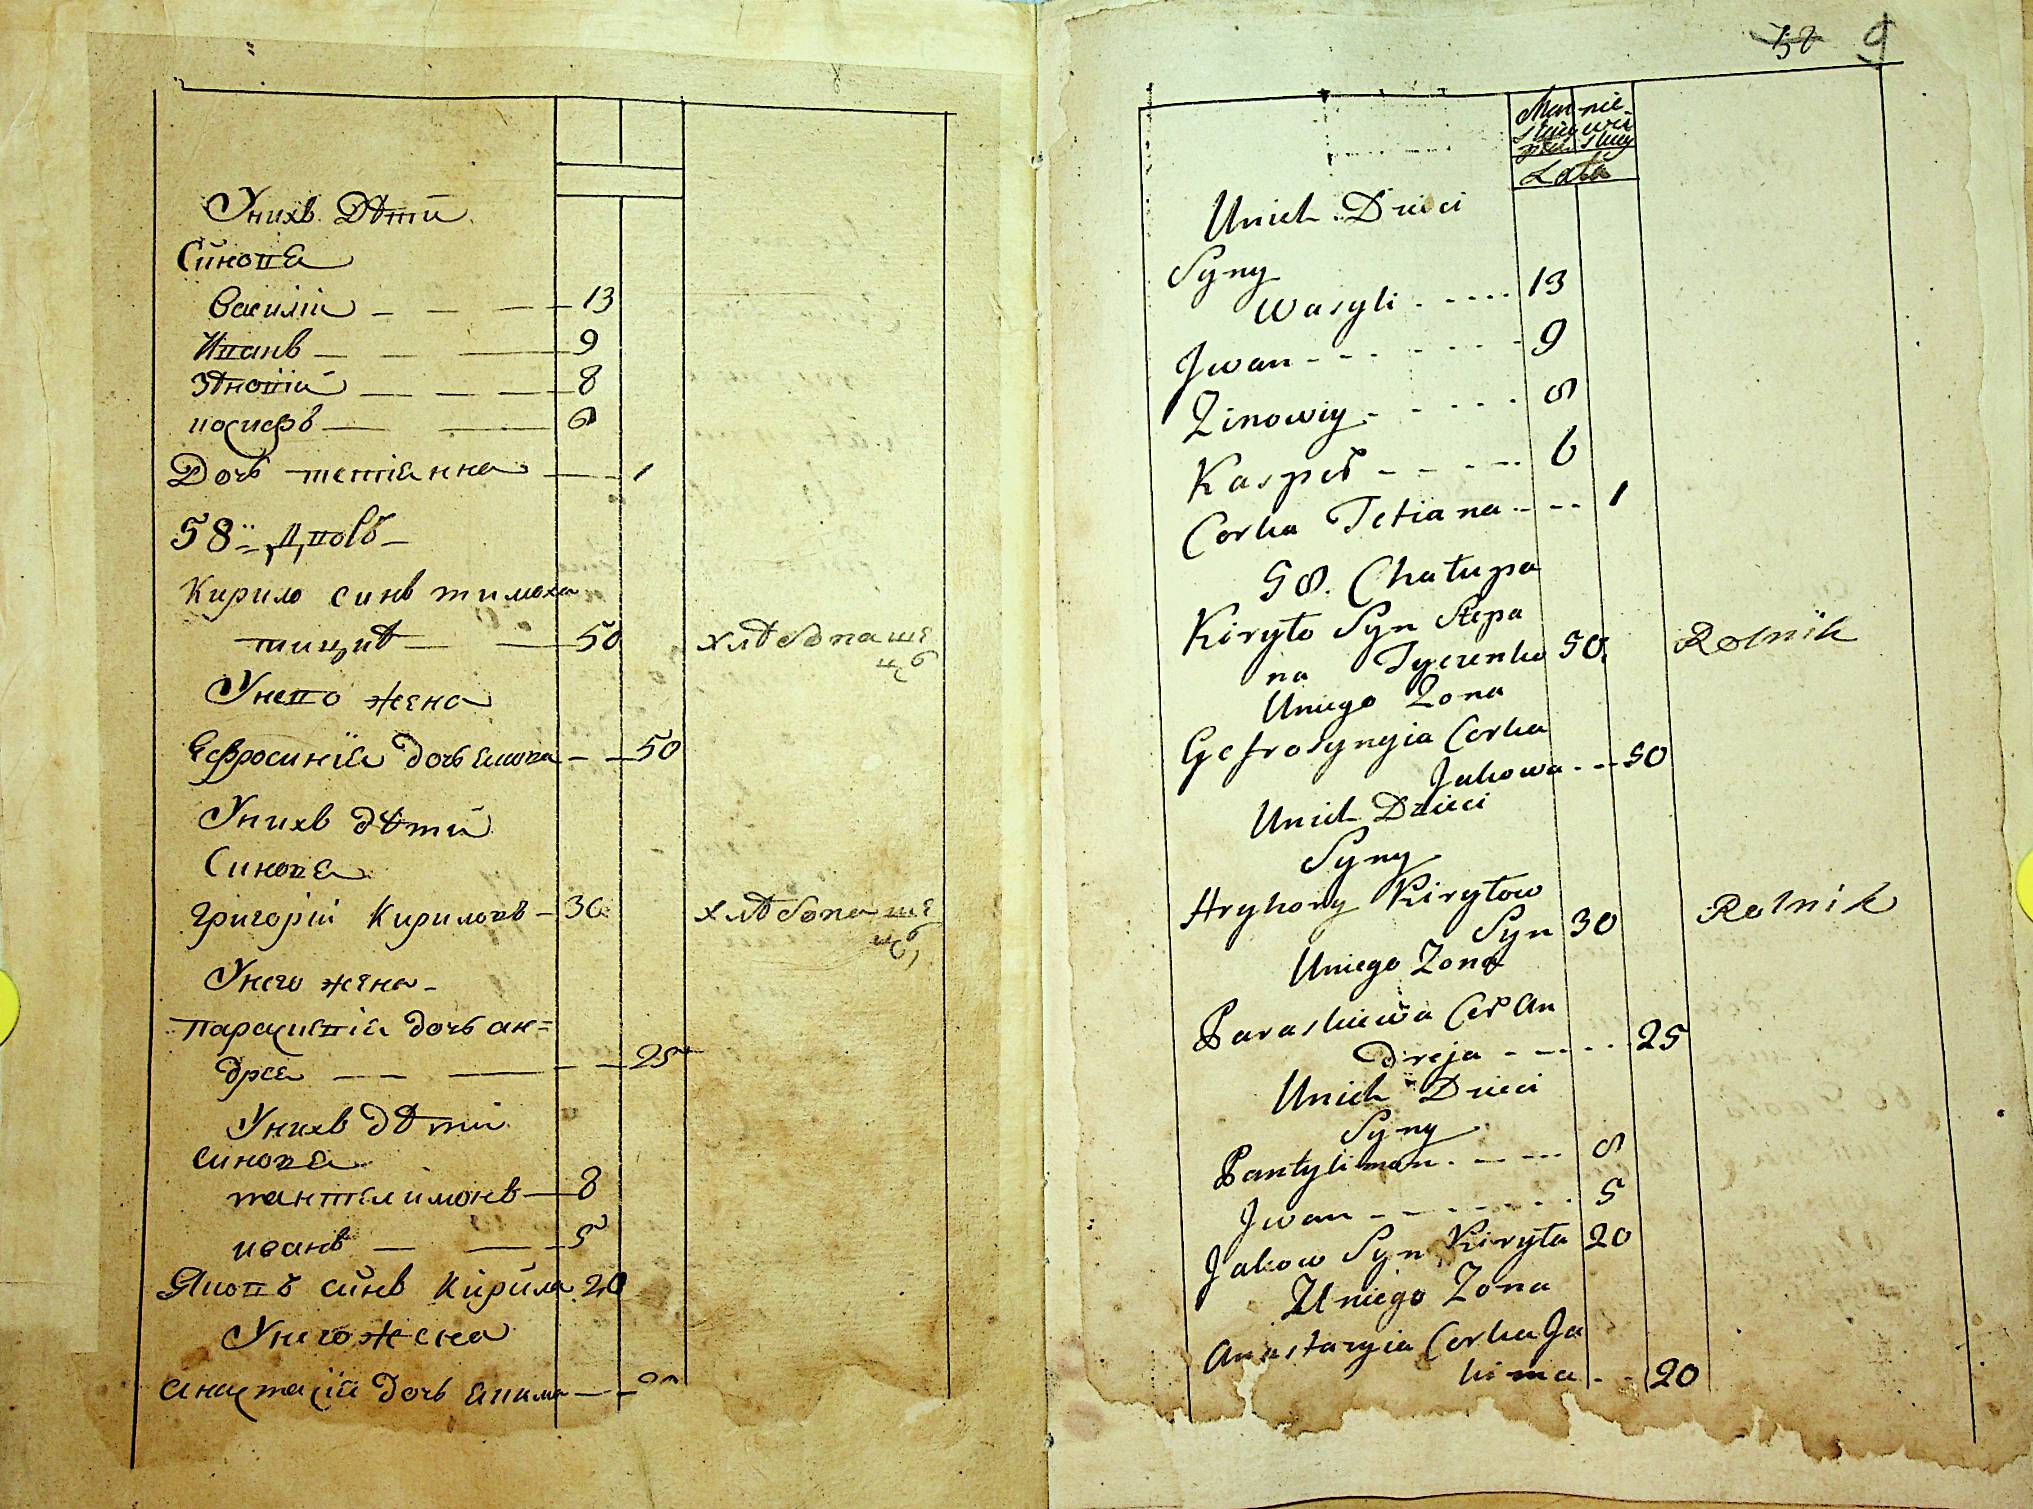 Унихъ Дѣти
Синовя
Василій 13
Иванъ 9
Зѣновій 8
иосифъ 6
Дочь тетіянна 1
58й Дворъ
Кирило синъ тимоха
50 хлѣбопаше
цъ
Унево жена
Ефросинія дочь якова 50
Унихъ дѣти
Синовя
григорій Кирилов 30 хлѣбопаше
цъ
Унего жена
параскевія дочь ан=
дрея 25
Унихъ дѣти
синовя
пантелимонъ 8
иванъ 5
Яковъ синъ Кирила 20
Унего жена
анастасія дочь якима
58 9
Męz nie
skiej wie
płci skiey
Lata
Unich Dzieci
Syny
Wasyli 13
Jwan 9
Zinowiy 8
Kasper 6
Corka Tetiana 1
58. Chałupa
Kiryło Syn Stepa
na Tyczenko 50. Rolnik
Uniego Zona
Gefrosynyia Corka
Jakowa 50
Unich Dzieci
Syny
Hryhory Kiryłow
Syn 30 Rolnik
Uniego Zona
Paraskiewia Cor An
dreja 25
Unich Dzieci
Syny
Pantylimon 8
Jwan 5
Jakow Syn Kiryła 20
Uniego Zona
Anastazyia Corka Ja
kima 20